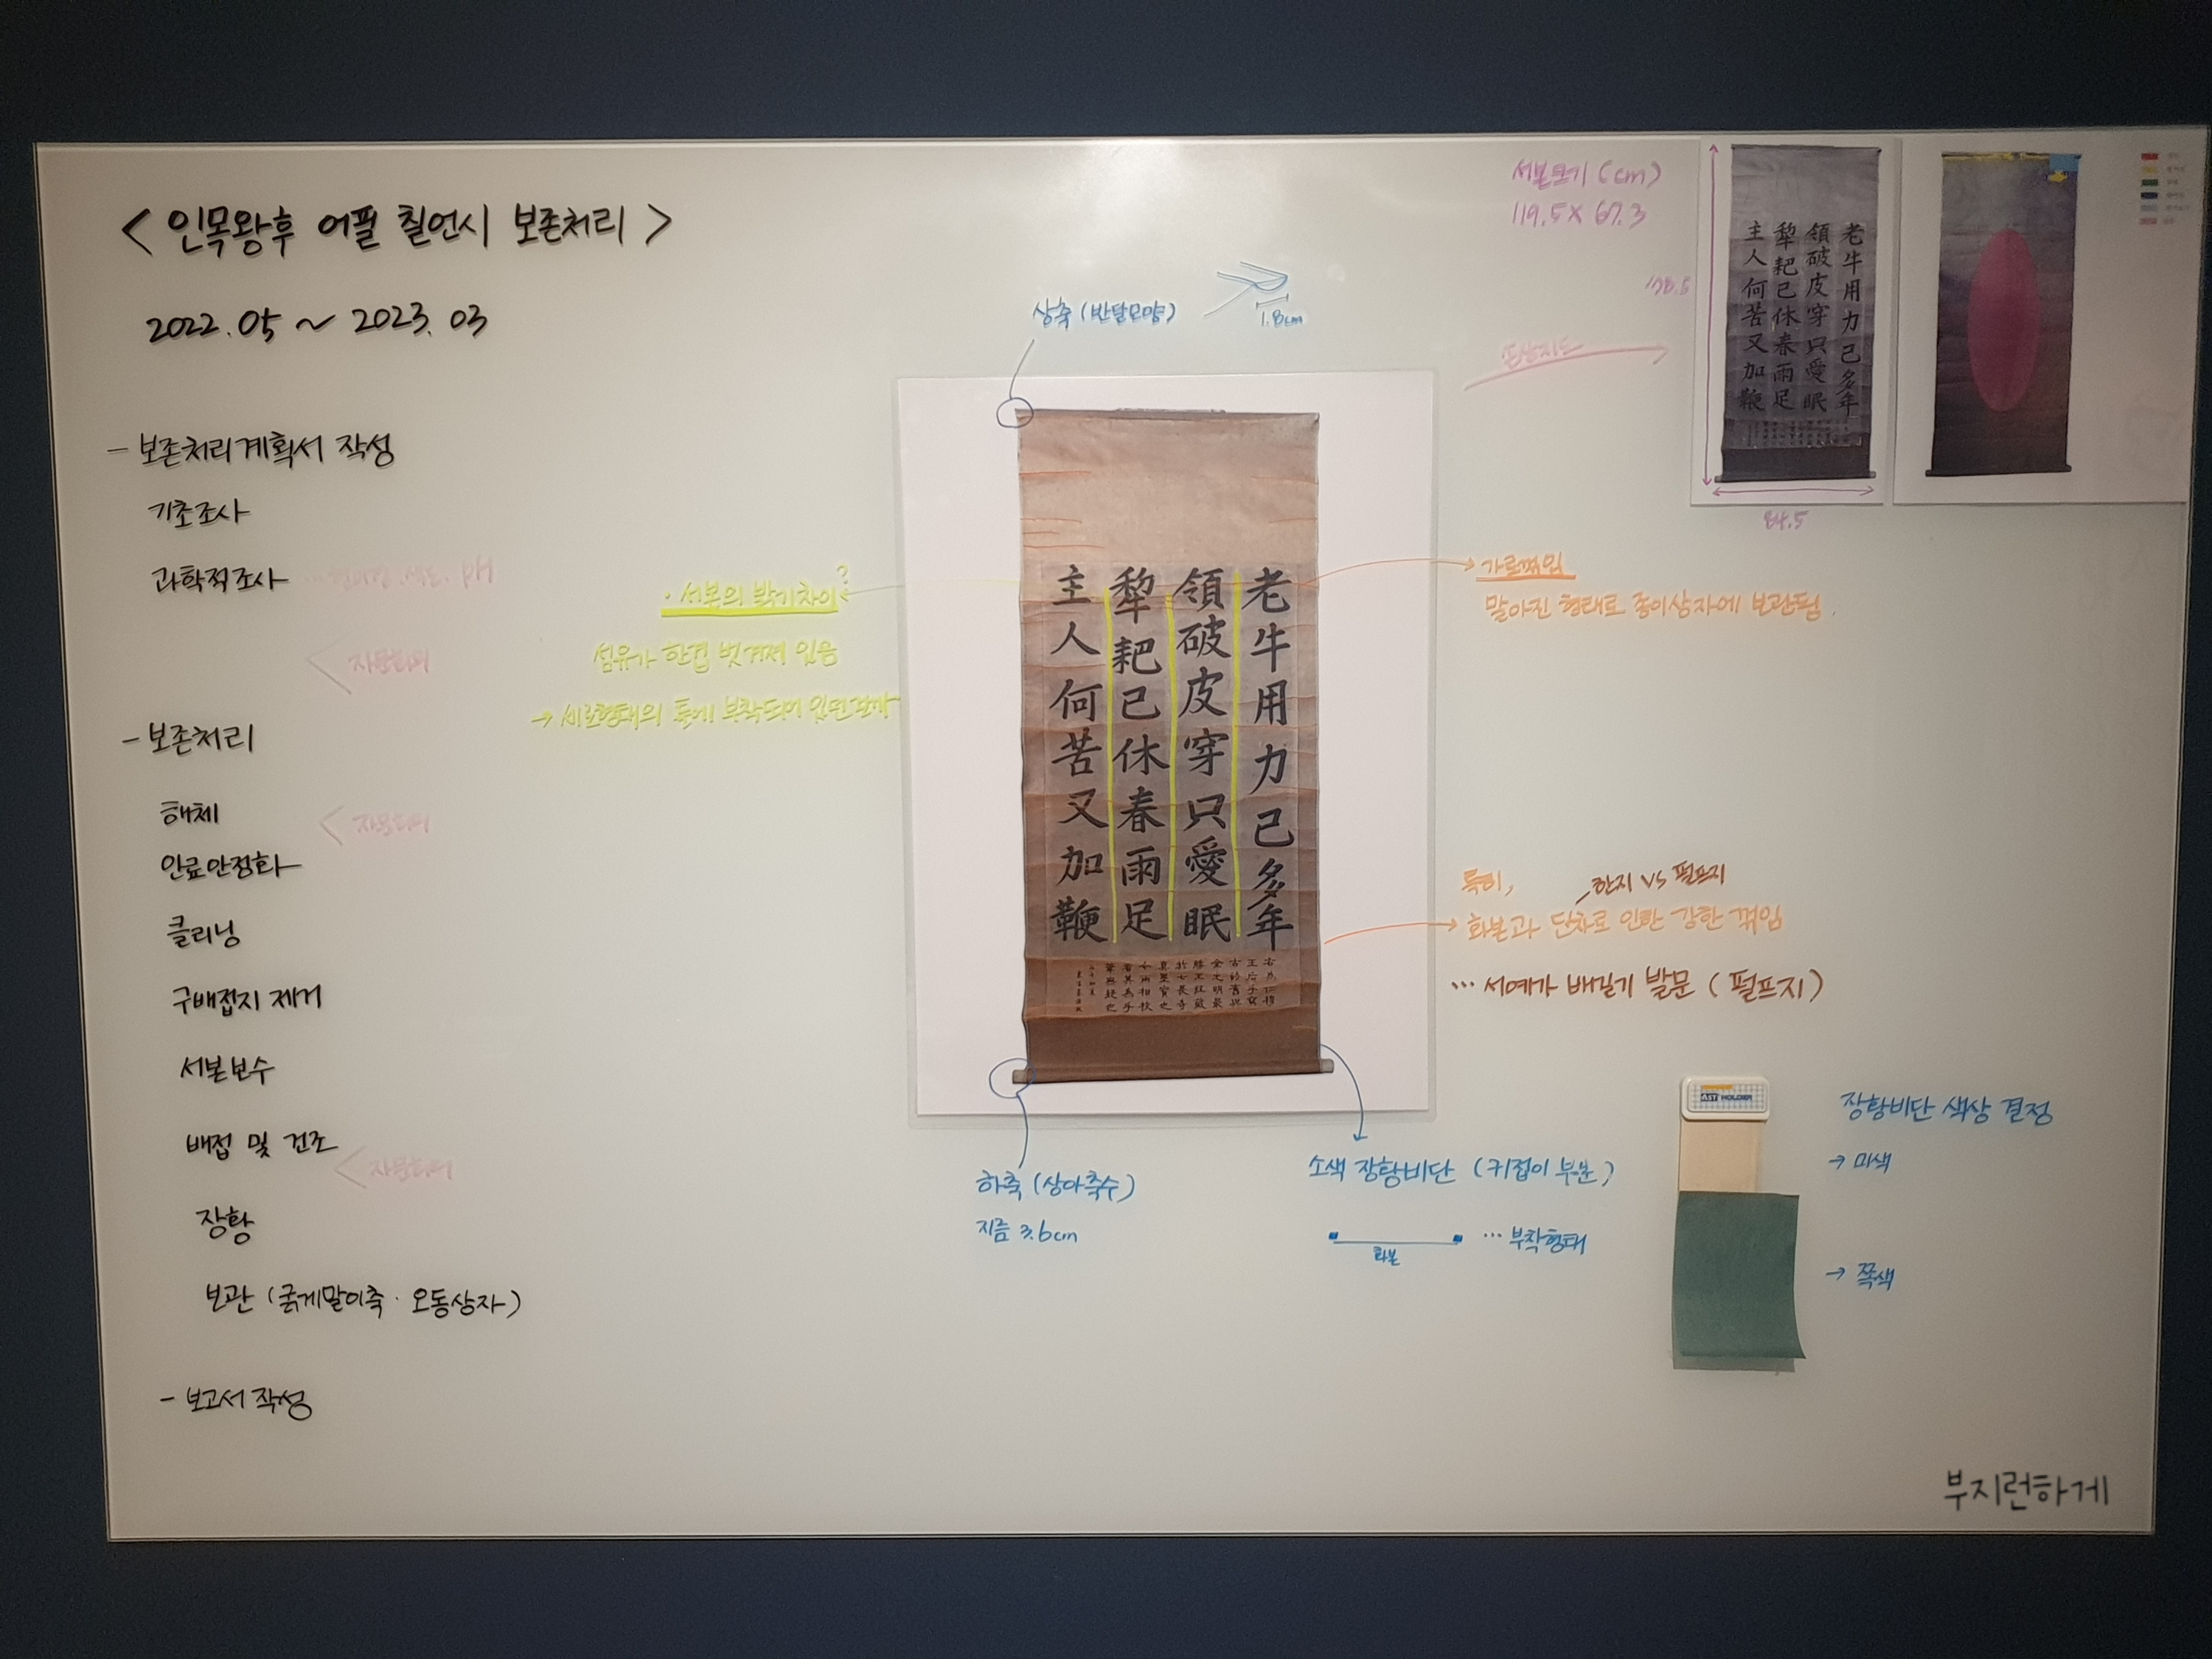 < 인목왕후 어필 칠언시 보존처리 >
2022.05 ~ 2023.03
- 보존처리계획서 작성
기초조사
과학적조사
pH
자문회의
- 보존처리
해체
자문회의
안료안정화
클리닝
구배접지 제거
서본보수
배접 및 건조
자문회의
장황
보관 (굵게말이축 · 오동상자)
- 보고서 작성
· 서본의 밝기차이?
섬유가 한겹 벗겨져 있음
→ 세로형태의 틀에 부착되어 있던걸까
상축 (반달모양)
1.8cm
老牛用力已多年
領破皮穿只愛眠
犂耙已休春雨足
主人何苦又加鞭
하축 (상아축수)
지름 3.6cm
소색 장황비단 (귀접이 부분)
화본
... 부착형태
서본크기 (cm)
119.5 × 67.3
178.5
84.5
손상지도
老牛用力已多年
領破皮穿只愛眠
犂耙已休春雨足
主人何苦又加鞭
가로꺾임
말아진 형태로 종이상자에 보관됨.
특히,
한지 vs 펄프지
화본과 단차로 인한 강한 꺾임
... 서예가 배길기 발문 (펄프지)
HOLDER
장황비단 색상 결정
→ 미색
→ 쪽색
부지런하게